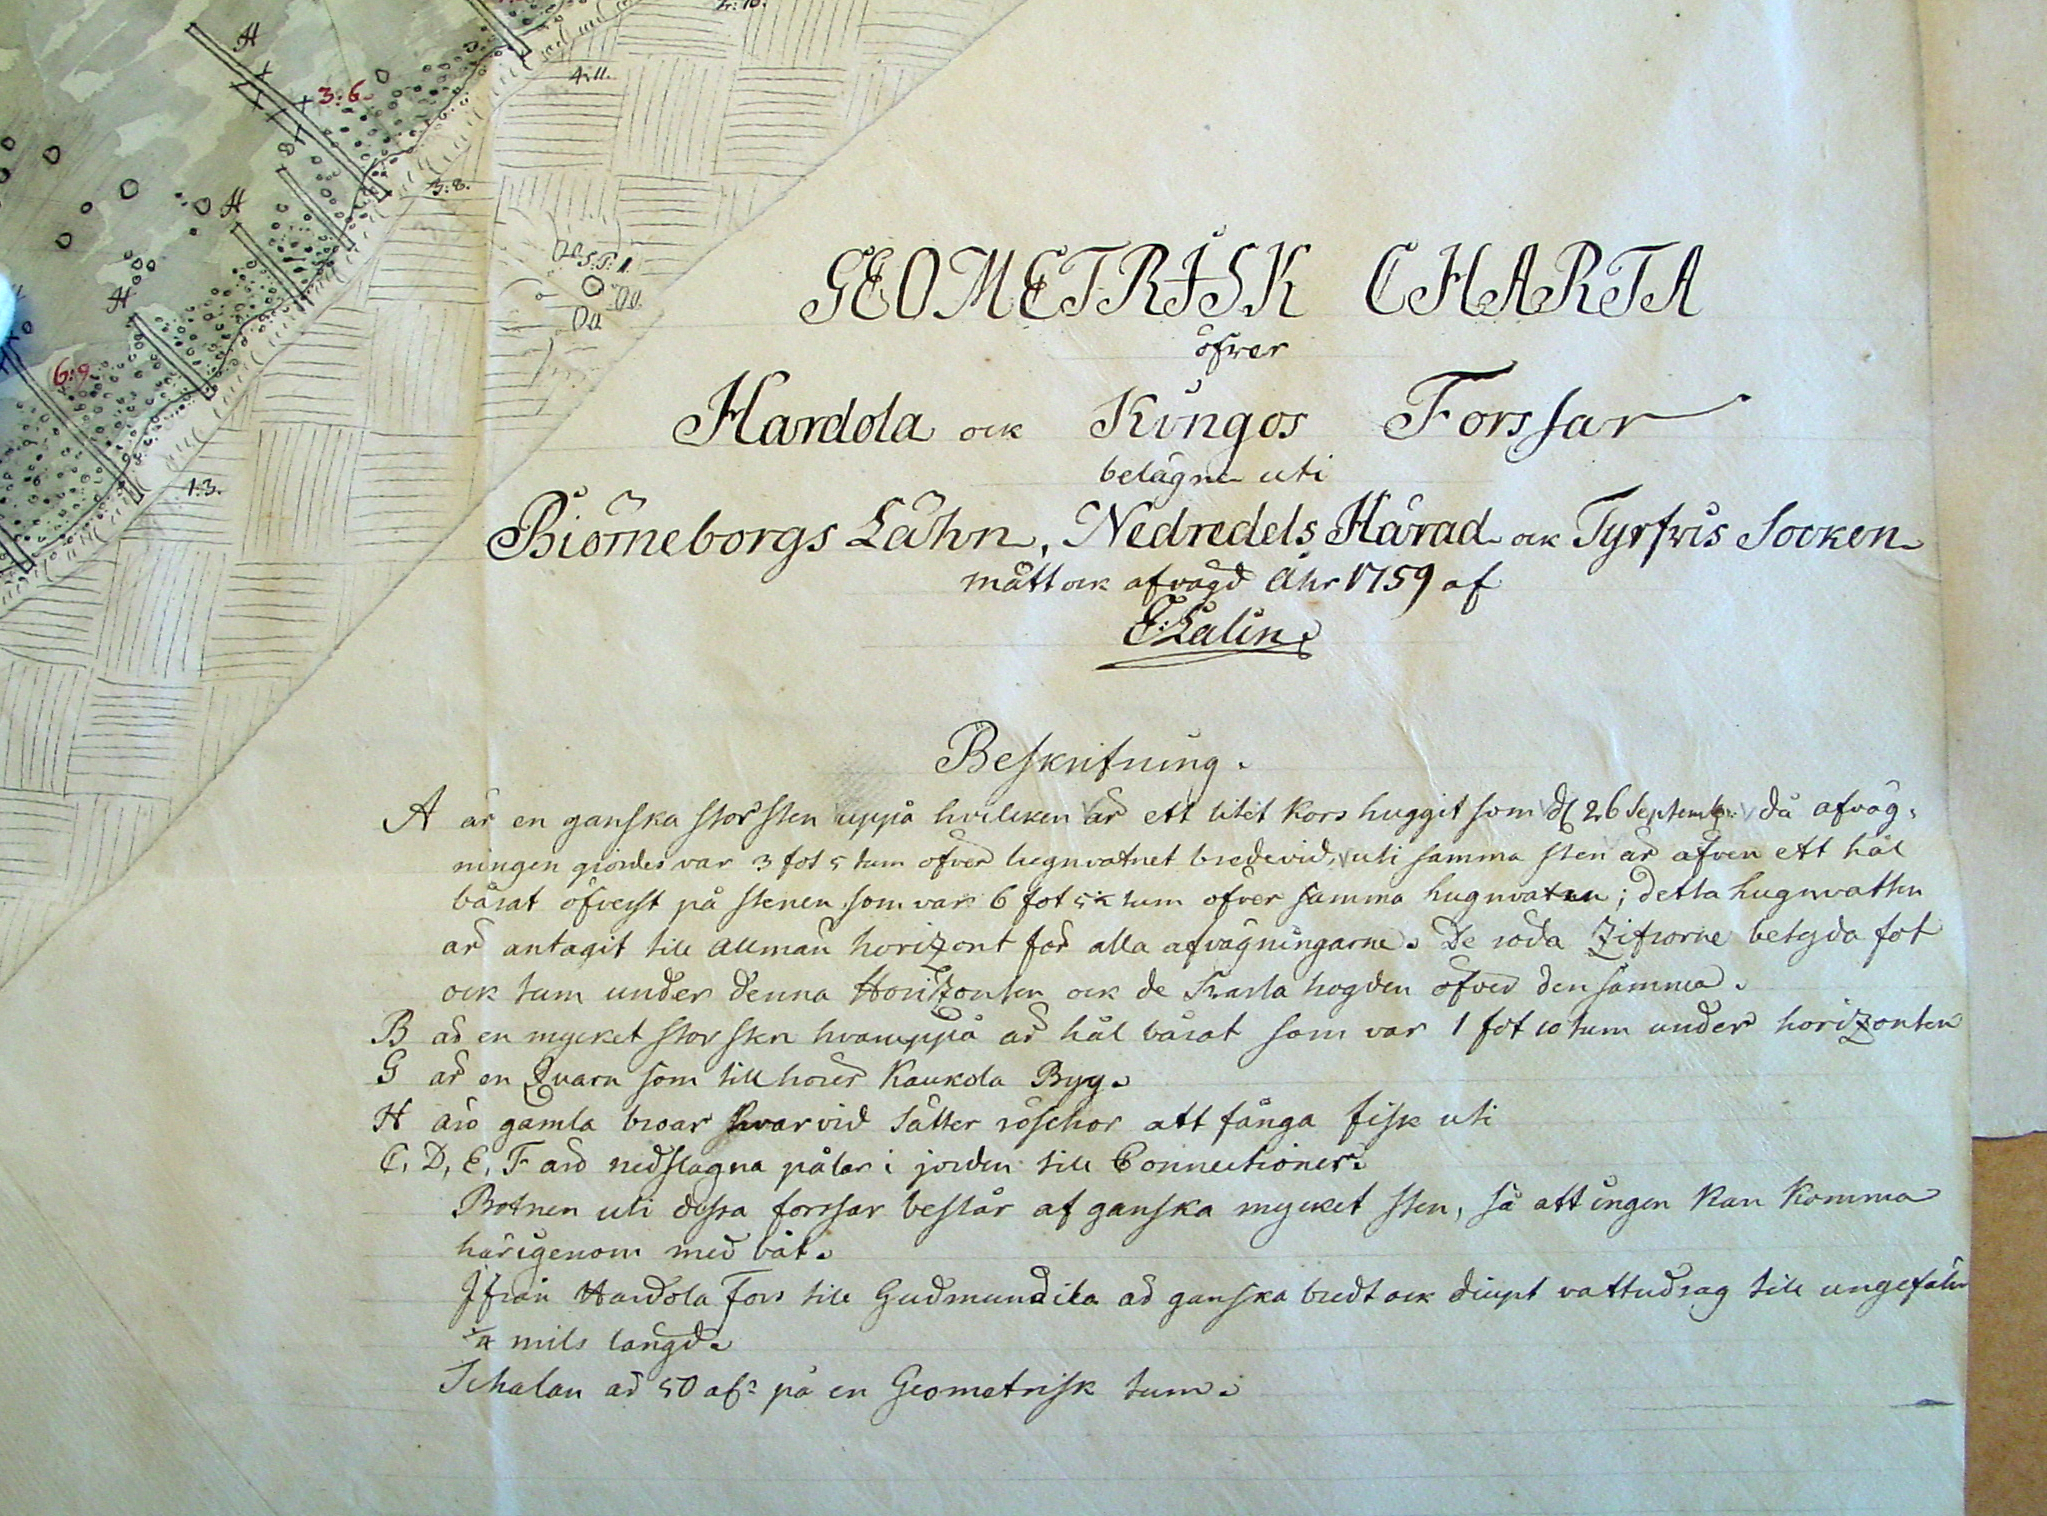 A
3:6.
4:11.
3:8.
A
A
6:9.
1:3.
GEOMETRISK CHARTA
öfver
Hardola ock Kungos Forssar
belägne uti
Biörneborgs Lähn, Nedredels Härad ock Tyrfvis Socken
mätt ock afvägd Åhr 1759 af
E: Lalin.
Beskrifning.
A är en ganska stor sten uppå hvilcken är ett litet kors huggit som d 26 Septemb: då afväg:
ningen giordes var 3 fot 5 tum öfver lugnvatnet bredevid, uti samma sten är äfven ett hål
bårat öfverst på stenen som var 6 fot 5 ½ tum öfver samma lugnvaten; detta lugnvatten
är antagit till Allmän horizont för alla afvägningarne. De röda Zifrorne betyda fot
ock tum under denna Horizonten ock de svarta högden öfver densamma.
B är en mycket stor sten hvaruppå är hål bårat som var 1 fot 10 tum under horizonten
G är en Qvarn som tillhörer Kaukola By.
H äro gamla broar hvarvid sätter ryschor att fånga fisk uti
C, D, E, F äro nedslagna pålar i jorden till Connectioner.
Botnen uti dessa forssar består af ganska mycket sten, så att ingen kan komma
härigenom med båt.
Ifrån Hardola Fors till Gudmundila är ganska bredt ock diupt vattudrag till ungefähr
¼ mils längd.
Schalan är 50 al: på en Geometrisk tum.